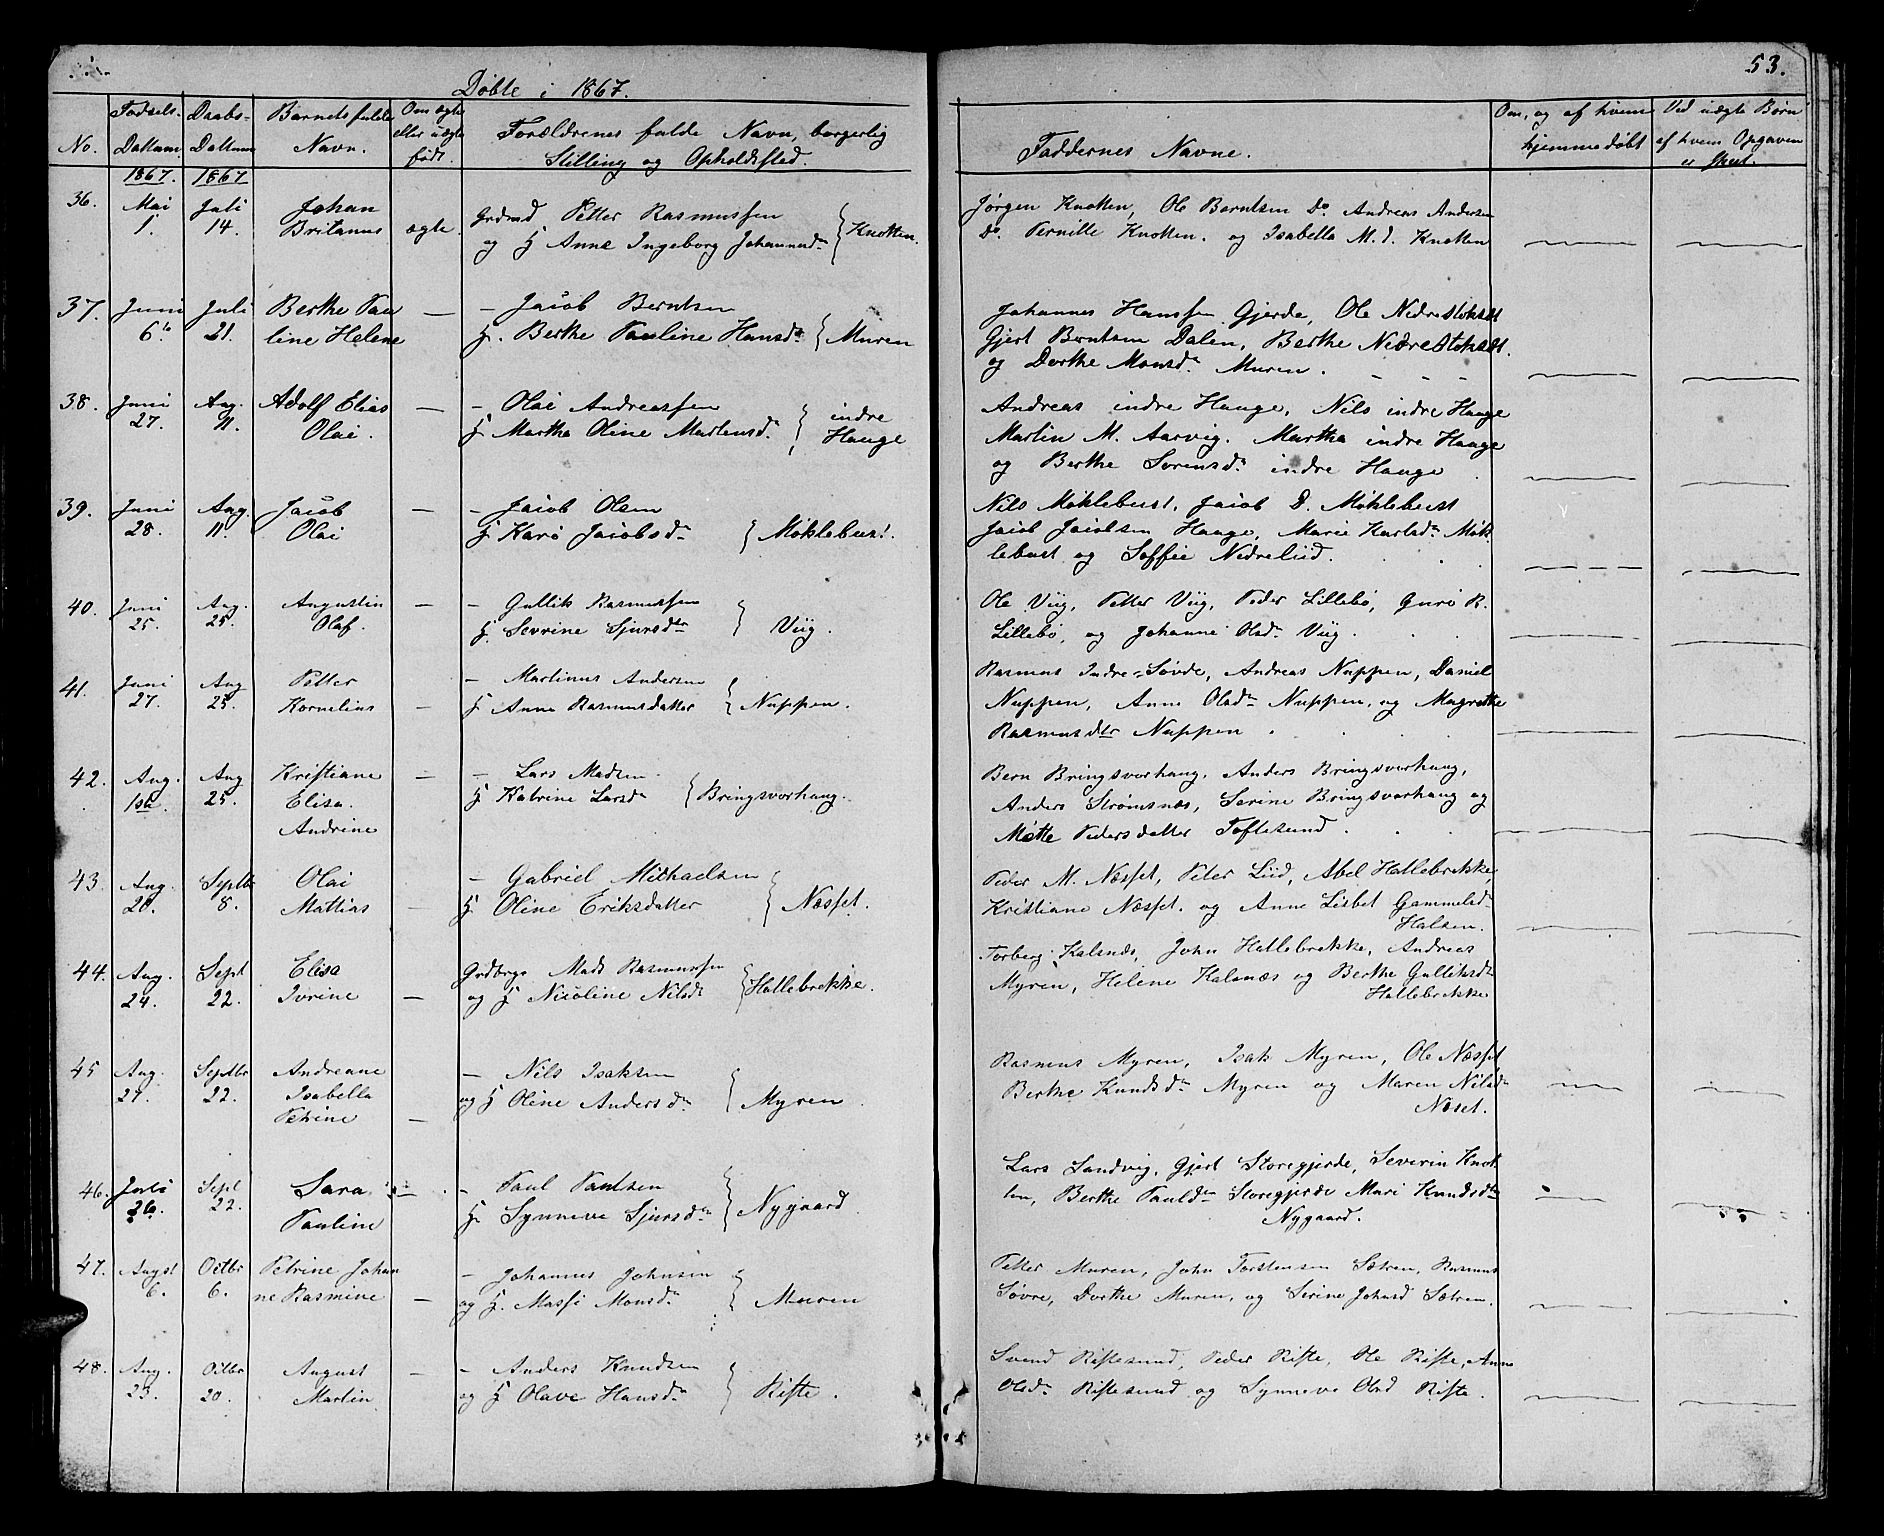 53.
Døbte i 1867.
No.
Fødsels-
Dattum.
Daabs-
Dattum
Barnets fulde
Navn.
Om ægte
eller uægte
født.
Forældrenes fulde Navn, borgerlig
Stilling og Opholdssted.
Faddernes Navne.
Om, og af hvem
hjemmedøbt
Ved uægte Børn
af hvem Opgaven
er skeet.
1867. 1867
36. Mai 1. Juli 14. Johan
Britanus ægte.
Grdmd Petter Rasmussen
og H Anne Ingeborg Johannsdr } Knotten.
Jørgen Knotten, Ole Berntsen Do. Andreas Andersen
Do. Pernille Knotten. og Isabella M. d. Knotten
37. Juni 6. Juli 21. Berthe Pau
line Helene —
— Jacob Berntsen
H. Berthe Pauline Hansdr } Muren
Johannes Hanssen Gjerde, Ole Nedrestokset
Gjert Berntsen Dalen, Berthe Nedrestokset.
og Dorthe Monsdr Muren.
38. Juni 27. Aug. 11. Adolf Elias
Olai. —
— Olai Andreassen
H. Martha Oline Martensdr. } indre
Hauge
Andreas indre Hauge, Nils indre Hauge
Martin M. Aarvig. Martha indre Hauge
og Berthe Sørensdr indre Hauge
39. Juni 28. Aug. 11. Jacob
Olai —
— Jacob Olsen
H Kari Jacobsdr } Møklebust.
Nils Møklebust, Jacob D. Møklebust
Jacob Jacobsen Hauge, Marie Karlsdr Møk-
lebust og Soffie Nedreliid.
40. Juni 25. Aug. 25. Augustin
Olaf. —
— Gullik Rasmussen
H. Sevrine Sjursdtr } Viig.
Ole Viig, Petter Viig, Peder Lillebø, Guri R.
Lillebø, og Johanne Olsdr Viig.
41. Juni 27. Aug 25. Petter
Kornelius —
— Martinus Andersen
H Anne Rasmusdatter } Nuppen.
Rasmus Indre-Søvde, Andreas Nuppen, Daniel
Nuppen, Anne Olsdr Nuppen, og Magrethe
Rasmusdtr Nuppen
42. Aug. 1ste Aug 25. Kristiane
Elisa.
Andrine —
— Lars Madsen.
H Katrine Larsdr } Bringsvorhaug.
Bern Bringsvorhaug, Anders Bringsvorhaug,
Anders Strømsnæs, Serine Bringsvorhaug og
Mette Pedersdatter Toftesund.
43. Aug. 20. Septbr 8. Olai
Mattias —
— Gabriel Michaelsen
H. Oline Eriksdatter } Næsset.
Peder M. Næsset, Peter Liid, Abel Hallebrekke
Kristiane Næsset. og Anne Lisbet Gammelsdr
Halsen.
44. Aug. 24. Sept 22. Elisa
Ivrine —
Grdbrgr Mads Rasmussen
og H Nicoline Nilsdr } Hallebrekke.
Torberg Kalsnæs, John Hallebrekke, Andreas
Myren, Helene Kalsnæs og Berthe Gulliksdr
Hallebrekke
45 Aug. 27. Septbr 22. Andreane
Isabella
Petrine —
— Nils Isaksen
og H Oline Andersdr } Myren.
Rasmus Myren, Isak Myren, Ole Næsset
Berthe Knudsdr Myren og Maren Nilsdr
Næset.
46. Juli 26. Sept 22. Sara
Pauline —
— Paul Paulsen
H. Synneve Sjursdr } Nygaard
Lars Sandvig, Gjert Storegjerde, Severin Knot-
ten, Berthe Paulsdr Storegjerde Mari Knudsdtr
Nygaard.
47. Augst 6. Octbr 6. Petrine Johan
ne Rasmine —
— Johannes Johnsen
og H. Massi Monsdr } Muren
Petter Muren, John Torstensen Sætren, Rasmus
Søvre, Dorthe Muren, og Serine Johnsd Sætren.
48. Aug. 23. Octbr 20. August
Martin. —
— Anders Knudsen
og H Olave Hansdr } Riste.
Svend Ristesund, Peder Riste, Ole Riste, Anne
Olsdr Ristesund og Synneve Olsd Riste.